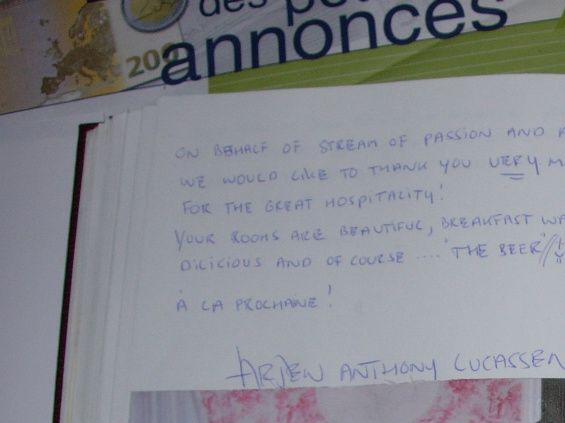 des
annonces
200
ON BEHALF OF STREAM OF PASSION AND
WE WOULD LIKE TO THANK YOU VERY M
FOR THE GREAT HOSPITALITY!
YOUR ROOMS ARE BEAUTIFUL, BREAKFAST WA
DILICIOUS AND OF COURSE .... 'THE BEER'
À LA PROCHAINE!
ARJEN ANTHONY LUCASSEN